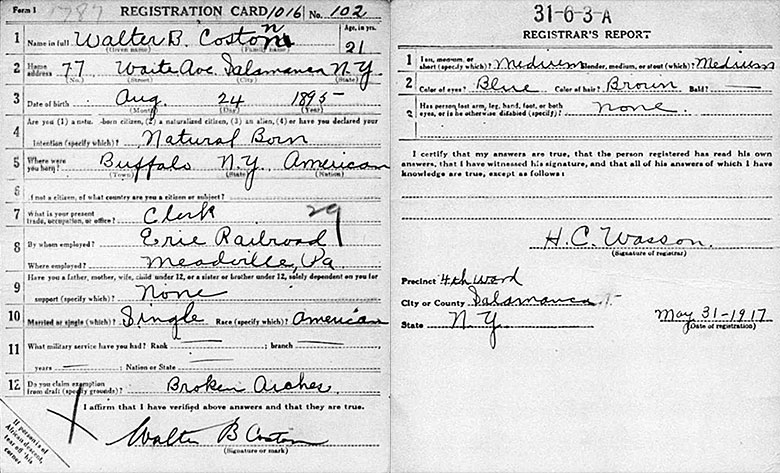 Form 1 1787 REGISTRATION CARD 1016 No. 102
1 Name in full Walter B. Coston Age, in yrs. 21
(Given name) (Family name)
2 Home address 77 Waite Ave. Salamanca N.Y.
(No.) (Street) (City) (State)
3 Date of birth Aug. 24 1895
(Month) (Day) (Year)
4 Are you (1) a natural-born citizen, (2) a naturalized citizen, (3) an alien, (4) or have you declared your
intention (specify which)? Natural Born
5 Where were you born? Buffalo N.Y. American
(Town) (State) (Nation)
6 If not a citizen, of what country are you a citizen or subject?
7 What is your present trade, occupation, or office? Clerk 29
8 By whom employed? Erie Railroad
Where employed? Meadville, Pa
9 Have you a father, mother, wife, child under 12, or a sister or brother under 12, solely dependent on you for
support (specify which)? None
10 Married or single (which)? Single Race (specify which)? American
11 What military service have you had? Rank ; branch
years ; Nation or State
12 Do you claim exemption from draft (specify grounds)? Broken Arches
I affirm that I have verified above answers and that they are true.
Walter B Coston
(Signature or mark)
If persons of
African descent,
tear off this
corner
31-6-3-A
REGISTRAR'S REPORT
1 Tall, medium, or short (specify which)? Medium Slender, medium, or stout (which)? Medium
2 Color of eyes? Blue Color of hair? Brown Bald?
3 Has person lost arm, leg, hand, foot, or both
eyes, or is he otherwise disabled (specify)? none
I certify that my answers are true, that the person registered has read his own
answers, that I have witnessed his signature, and that all of his answers of which I have
knowledge are true, except as follows:
H. C. Wasson
(Signature of registrar)
Precinct 4th Ward
City or County Salamanca
State N.Y. May 31-1917
(Date of registration)